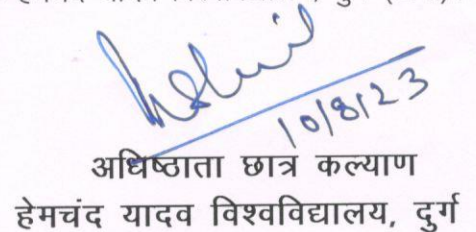 10/8/23
अधिष्ठाता छात्र कल्याण
हेमचंद यादव विश्वविद्यालय, दुर्ग